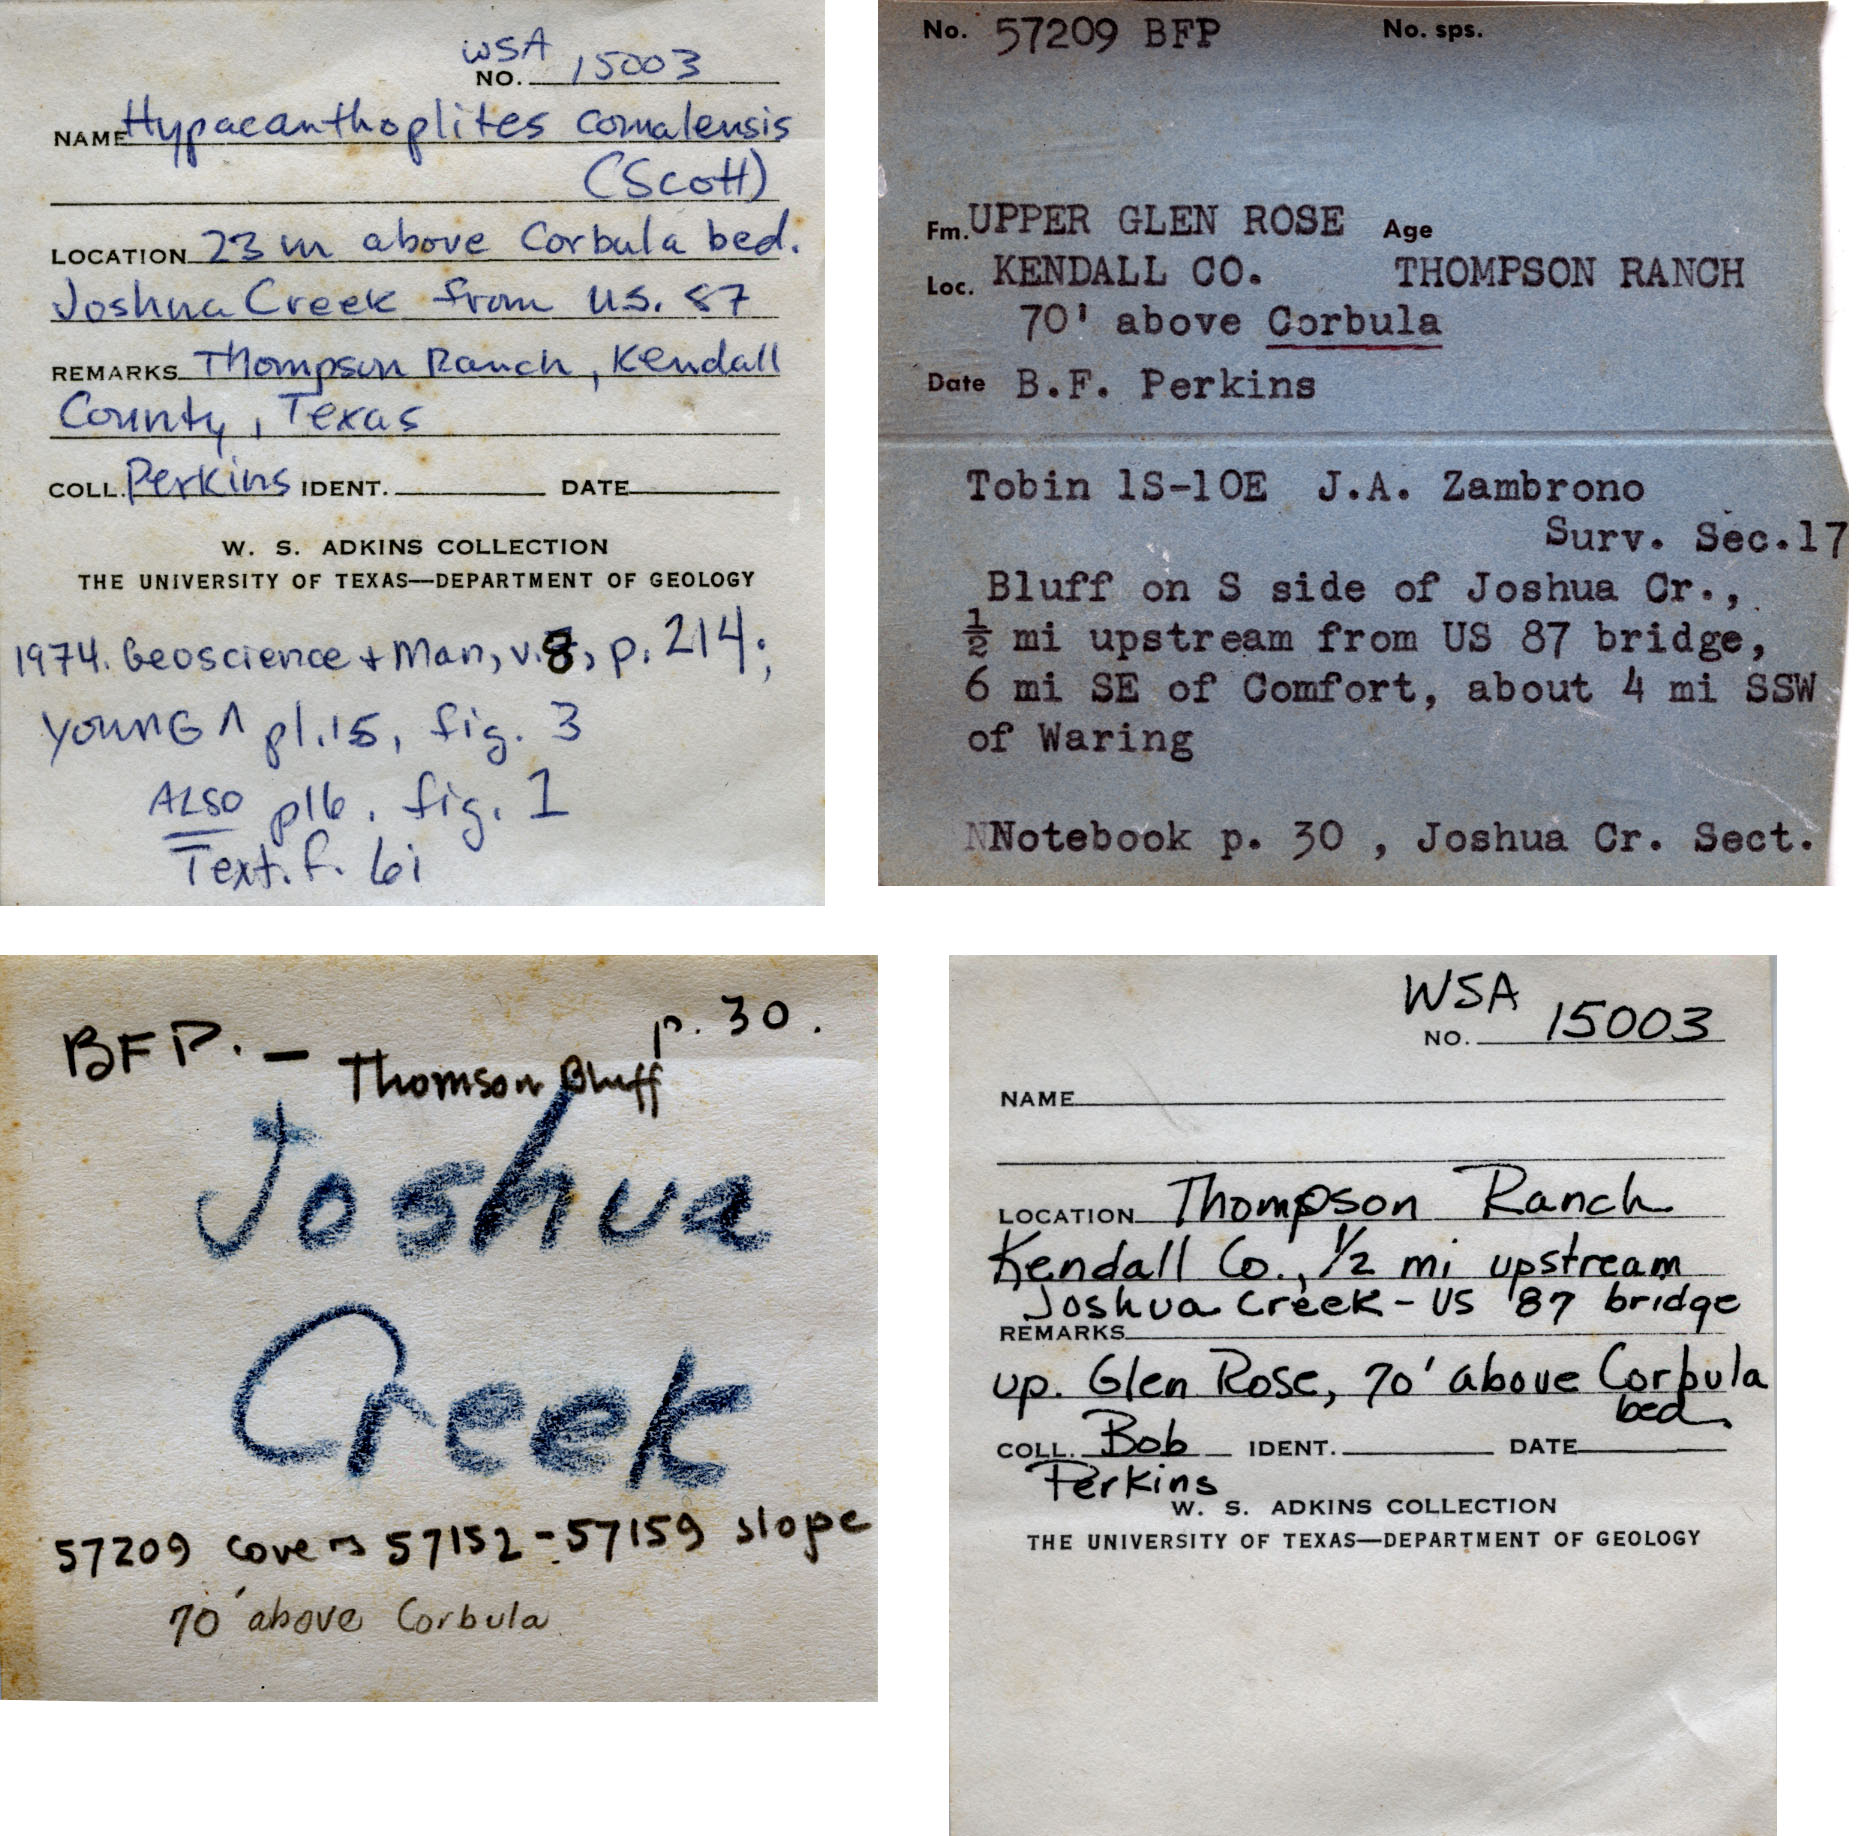 WSA
NO. 15003
NAME Hypacanthoplites comalensis
(Scott)
LOCATION 23 m above Corbula bed.
Joshua Creek from U.S. 87
REMARKS Thompson Ranch, Kendall
County, Texas
COLL. Perkins IDENT. DATE
W. S. ADKINS COLLECTION
THE UNIVERSITY OF TEXAS—DEPARTMENT OF GEOLOGY
1974. Geoscience + Man, v. 8, p. 214;
YOUNG ^ pl. 15, fig. 3
ALSO pl6. fig. 1
Text. f. 6i
No. 57209 BFP No. sps.
Fm. UPPER GLEN ROSE Age
Loc. KENDALL CO. THOMPSON RANCH
70' above Corbula
Date B.F. Perkins
Tobin 1S-10E J.A. Zambrono
Surv. Sec.17
Bluff on S side of Joshua Cr.,
½ mi upstream from US 87 bridge,
6 mi SE of Comfort, about 4 mi SSW
of Waring
NNotebook p. 30 , Joshua Cr. Sect.
BFP. — p. 30.
Thomson Bluff
Joshua
Creek
57209 covers 57152-57159 slope
70' above Corbula
WSA
NO. 15003
NAME
LOCATION Thompson Ranch
Kendall Co., 1/2 mi upstream
Joshua Creek - US 87 bridge
REMARKS
up. Glen Rose, 70' above Corbula
bed.
COLL. Bob IDENT. DATE
Perkins
W. S. ADKINS COLLECTION
THE UNIVERSITY OF TEXAS—DEPARTMENT OF GEOLOGY